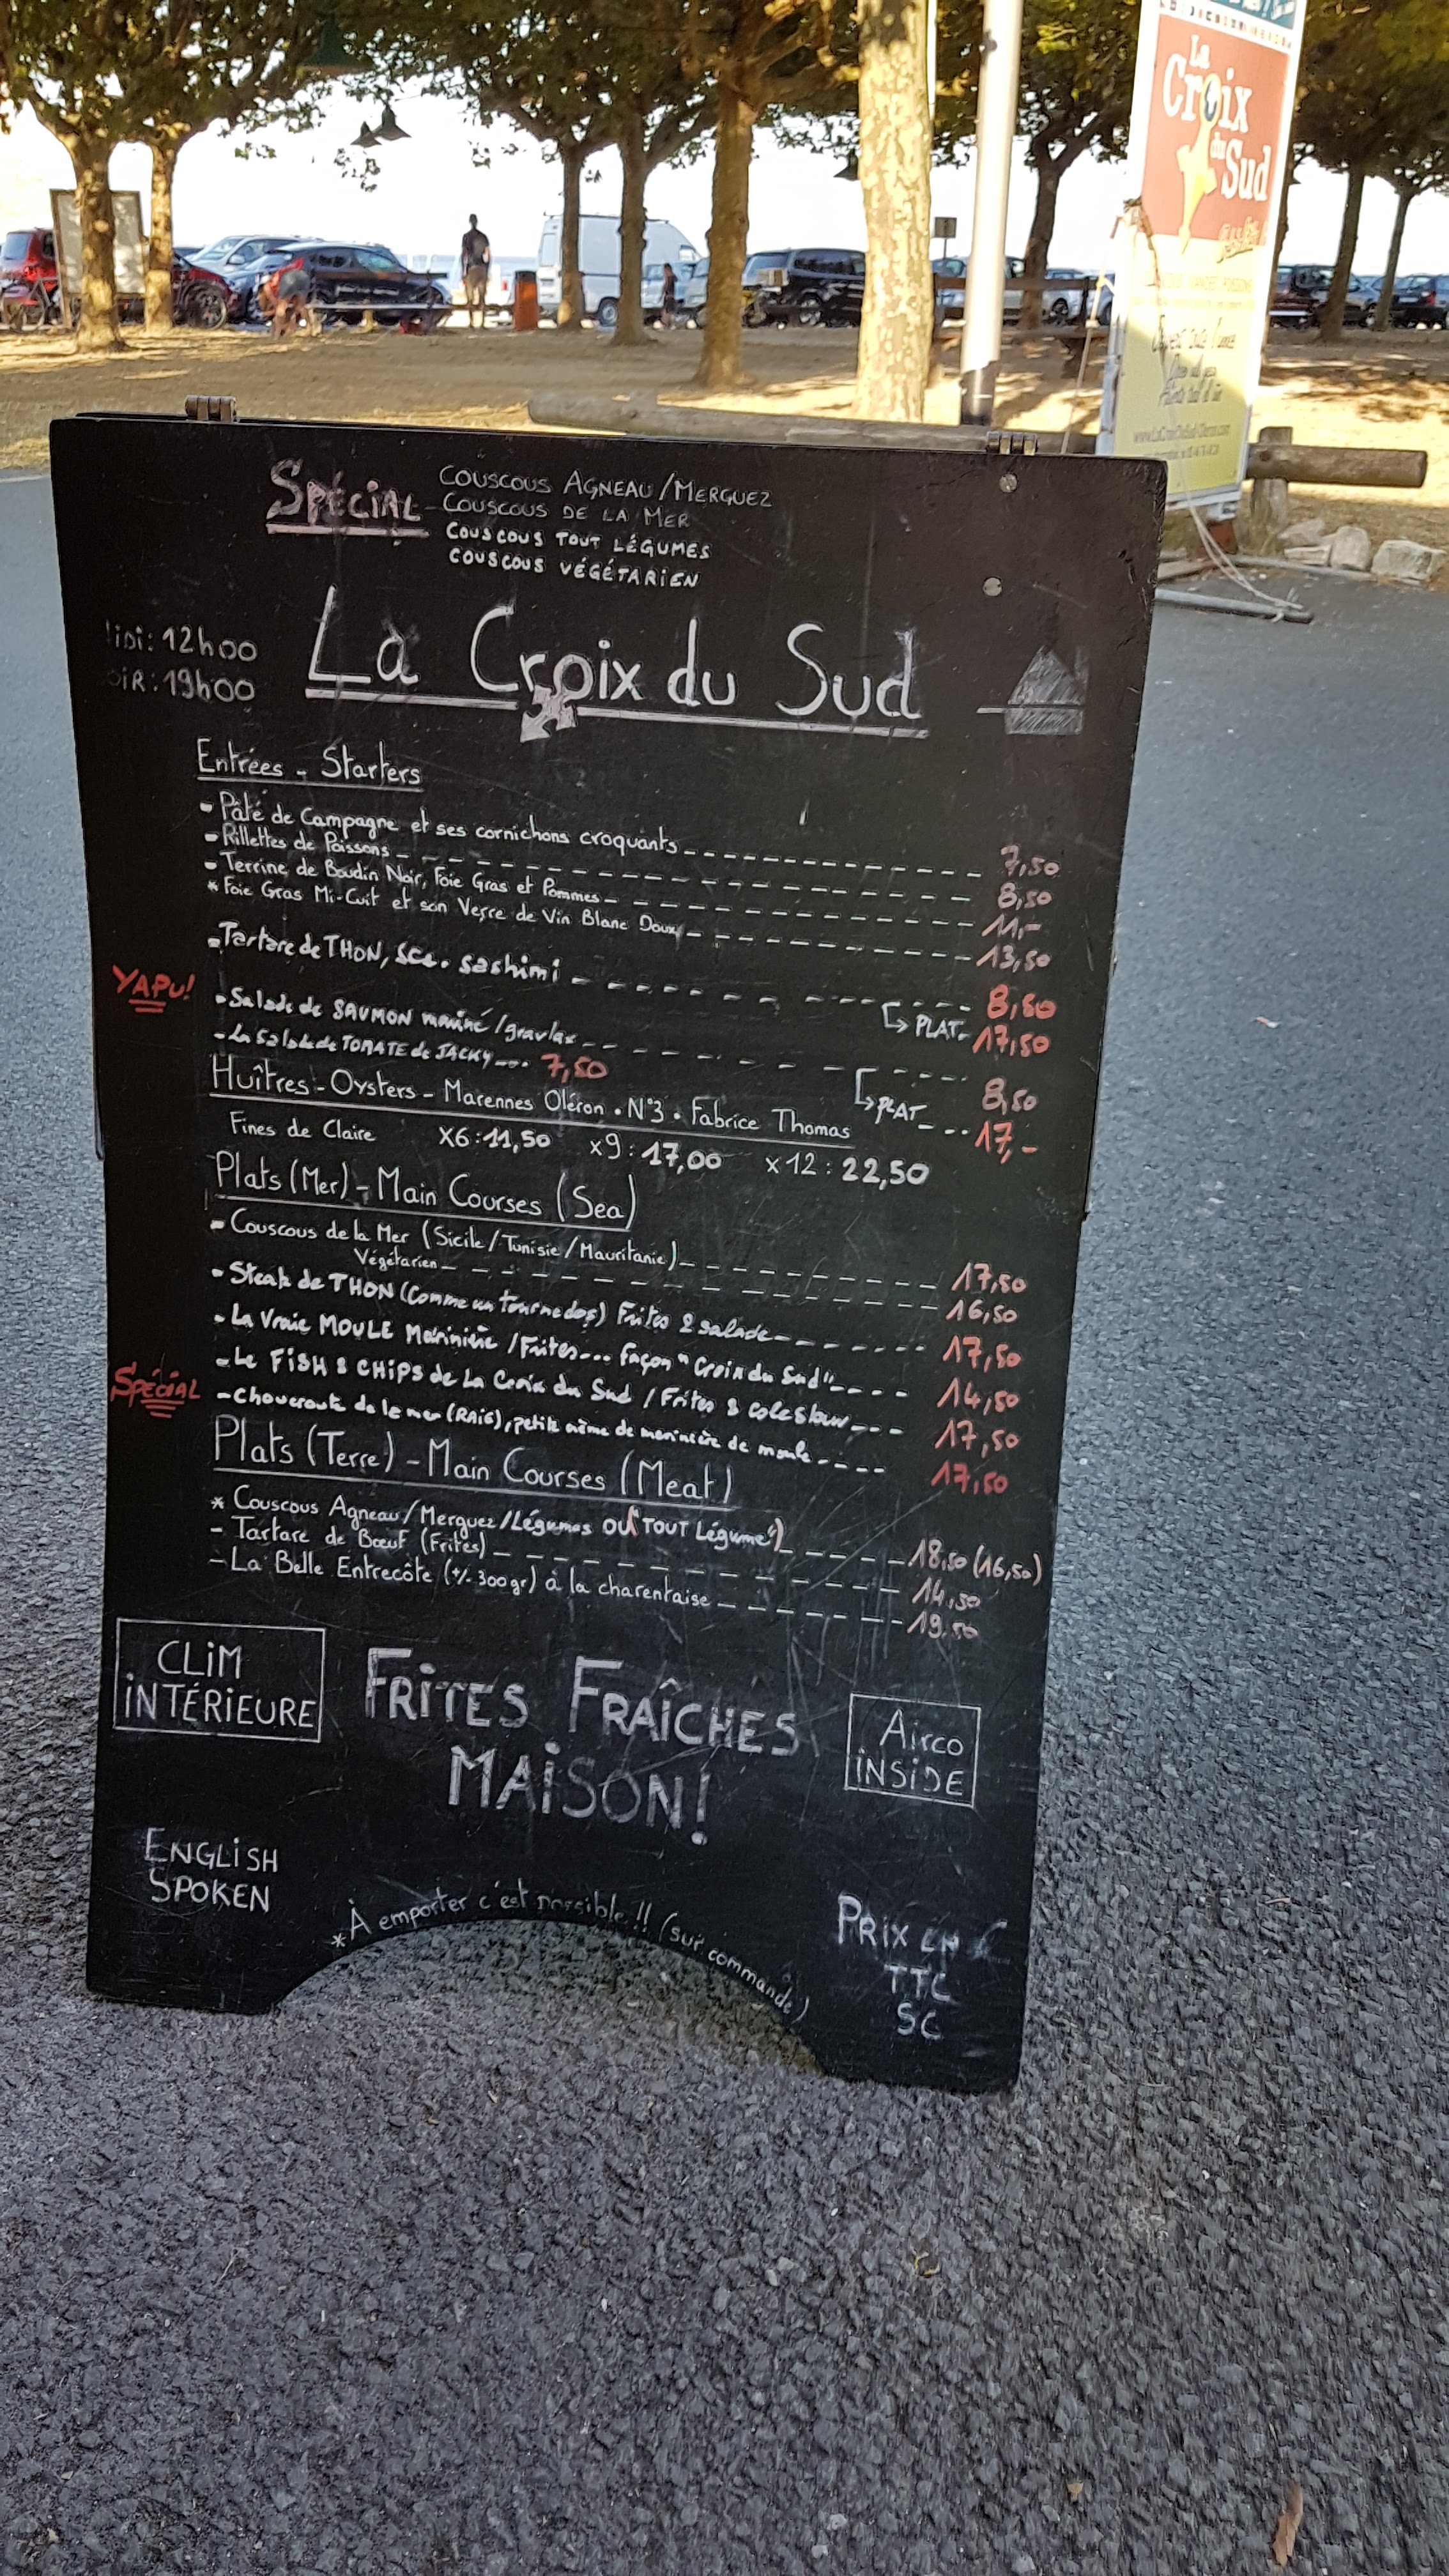 La
Croix
du
Sud
www.LaCroixDuSud-Oleron.com
SPÉCIAL
COUSCOUS AGNEAU/MERGUEZ
COUSCOUS DE LA MER
COUSCOUS TOUT LÉGUMES
COUSCOUS VÉGÉTARIEN
iDi: 12h00
OiR: 19h00
La Croix du Sud
Entrées - Starters
- Pâté de Campagne et ses cornichons croquants 7,50
- Rillettes de Poissons 8,50
- Terrine de Boudin Noir, Foie Gras et Pommes 11,-
* Foie Gras Mi-Cuit et son Verre de Vin Blanc Doux 13,50
- Tartare de THON, sce. sashimi 8,50
PLAT 17,50
YAPU!
- Salade de SAUMON mariné/gravlax 8,50
PLAT 17,-
- La Salade de TOMATE de JACKY 7,50
Huîtres - Oysters - Marennes Oléron • N°3 • Fabrice Thomas
Fines de Claire x6: 11,50 x9: 17,00 x12: 22,50
Plats (Mer) - Main Courses (Sea)
- Couscous de la Mer (Sicile/Tunisie/Mauritanie) 17,50
Végétarien 16,50
- Steak de THON (Comme un Tournedos) Frites & salade 17,50
- La Vraie MOULE Marinière/Frites... façon "Croix du Sud" 14,50
- Le FISH & CHIPS de La Croix du Sud / Frites & coleslaw 17,50
SPÉCIAL
- Choucroute de la mer (RAIE), petite crème de marinière de moule 17,50
Plats (Terre) - Main Courses (Meat)
* Couscous Agneau/Merguez/Légumes OU ("TOUT Légume") 18,50 (16,50)
- Tartare de Bœuf (Frites) 14,50
- La Belle Entrecôte (+/- 300gr) à la charentaise 19,50
CLIM
INTÉRIEURE
FRITES FRAÎCHES
MAISON!
Airco
INSIDE
ENGLISH
SPOKEN
* À emporter c'est possible!! (sur commande)
PRIX EN €
TTC
SC